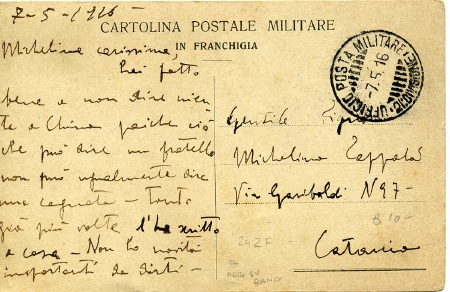 7-5-1916-
CARTOLINA POSTALE MILITARE
IN FRANCHIGIA
UFFICIO POSTA MILITARE
-7.5.16
Michelina carissima,
Hai fatto
bene a non dire nien-
te a China poiche ciò
che può dire un fratello
non può ugualmente dire
una cognata - Tanto
già più volte l'ho scritto
a casa - Non ho novità
importanti da dirti -
Gentile
Michelina Zappalà
Via Garibaldi N 97-
Catania
8 10-
24ZF
BIANCO